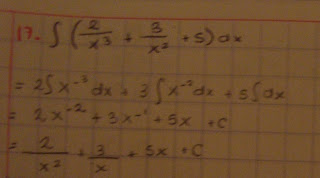 17. ∫ (2/x³ + 3/x² + 5) dx
= 2∫x⁻³dx + 3∫x⁻²dx + 5∫dx
= 2x⁻² + 3x⁻¹ + 5x + C
= 2/x² + 3/x + 5x + C